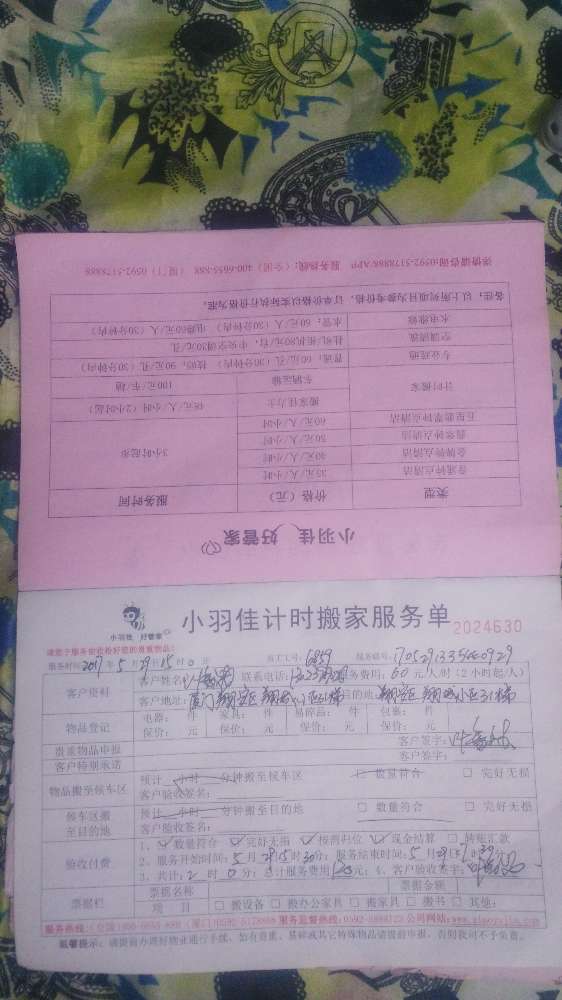 小羽佳 好管家
类型 价格（元） 服务时间
普通钟点清洁 35元/人/小时
金牌钟点清洁 40元/人/小时 3小时起步
翡翠钟点清洁 50元/人/小时
五星翡翠钟点清洁 60元/人/小时
计时搬家 搬家佳力士 元/人/小时（2小时起）
车辆运输 100元/车/趟
空调清洗 挂机/柜机80元/台，中央空调30元/孔
水电维修 水管：60元/人（30分钟内） 电路60元/人（30分钟内）
备注：以上所列项目为参考价格，订单价格以实际执行价格为准。
详情请咨询:0592-5178888/APP 服务热线：（全国）400-6655-888 （厦门）0592-5178888
小羽佳 好管家
小羽佳计时搬家服务单 2024630
请您于服务前检检好您的贵重物品！
服务时间 2017年5月29日15时0分 员工工号: 6859 服务编号:
客户资料 客户姓名: 联系电话: 服务费用: 60元/人/时（2小时起/人）
客户地址: 目的地:
物品登记 电器: 件 家具: 件 易碎品: 件 包裹: 件
保价: 元 保价: 元 保价: 元 保价: 元
贵重物品申报 客户签字:
客户特别承诺 客户签字:
物品搬至候车区 预计 小时 分钟搬至候车区 □ 数量符合 □ 完好无损
客户验收签名:
停车区搬至目的地 预计 小时 分钟搬至目的地 □ 数量符合 □ 完好无损
客户验收签名:
验收付费 1、数量符合 完好无损 按需归位 现金结算 □ 转账汇款
2、服务开始时间: 5月29日15时30分; 服务结束时间: 5月29日
3、共计: 2时0分; 总计服务费用 元; 4、客户验收签字:
票据栏 票据名称 票据金额
项目 □ 搬设备 □ 搬办公家具 □ 搬家具 □ 搬书 □ 其他:
服务热线:(全国)400-6655-888(厦门)0592-5178888 服务监督热线:0592-5888123 公司网站:www.xiaoyujia.com
温馨提示：请提前办理好物业通行手续，如有贵重、易碎或其它特殊物品请提前申报，否则我司不予负责。